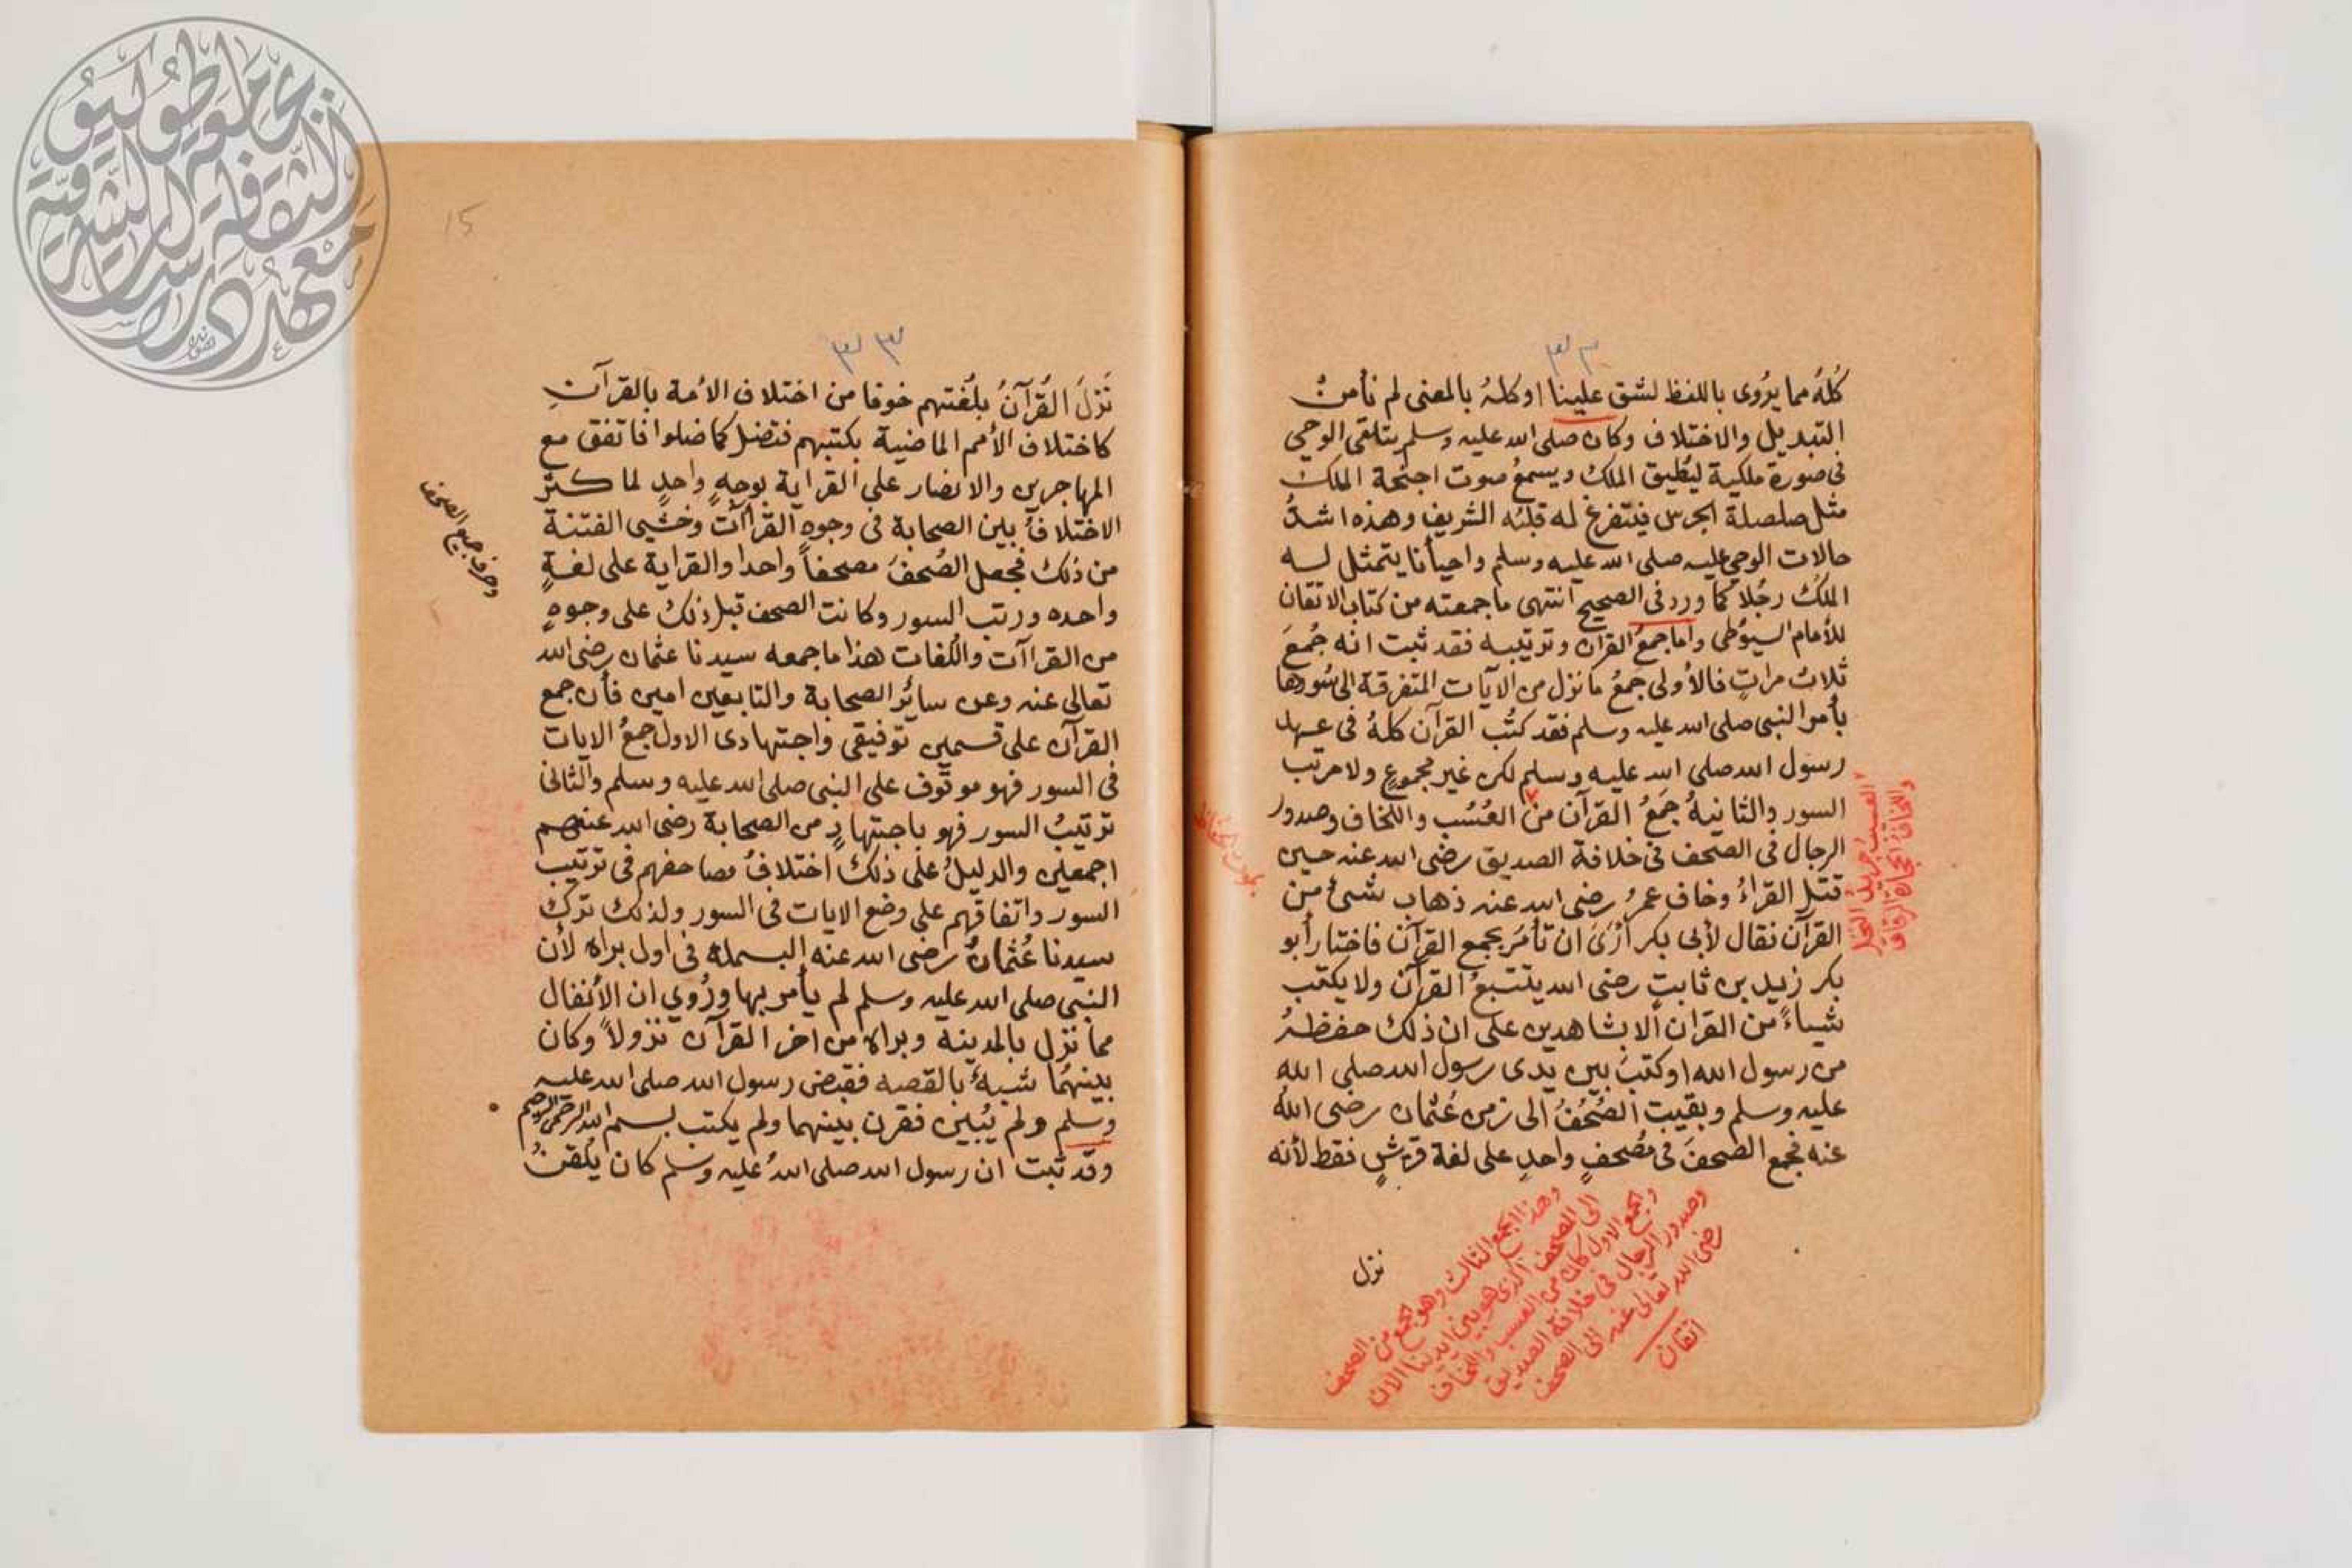 ٣٢
كُلهُ مما يرُوى باللفظ لشق علينا او كلهُ بالمعنى لم نأمن
التبديل والاختلاف وكان صلى الله عليه وسلم يتلقى الوحي
فى صورة ملكية ليُطيق الملك ويسمعُ صوت اجنحة الملك
مثل صلصلة الجرس فيتفرغ له قلبُه الشريف وهذه اشدُّ
حالات الوحي عليه صلى الله عليه وسلم واحيأنا يتمثل له
الملكُ رجُلاً كما ورد فى الصحيح انتهى ما جمعته من كتاب الاتقان
للأمام السيوُطى واما جمعُ القران وترتيبه فقد ثبت انه جُمعَ
ثلاث مراتٍ فالأولى جمعُ ما نزل من الآيات المتفرقة الى سُورها
بأمر النبي صلى الله عليه وسلم فقد كتُب القرآن كلهُ فى عهد
رسول الله صلى الله عليه وسلم لكن غير مجموعٍ ولا مرتب
السور والثانيةُ جَمعُ القرآن من العُسُب واللخاف وصدور
الرجال فى الصحف فى خلافة الصديق رضى الله عنه حين
قتل القراءُ وخاف عمرُ رضى الله عنه ذهاب شىئ من
القرآن فقال لأبى بكر أرَىَ ان تأمرَ بجمع القرآن فاختار أبو
بكر زيد بن ثابت رضى الله يتتبعُ القرآن ولا يكتب
شياءً من القران ألا بشاهدين على ان ذلك حفظهُ
من رسول الله او كتبَ بين يدى رسول الله صلى الله
عليه وسلم وبقيت الصُحُفُ الى زمن عُثمان رضى اللهُ
عنه فجمع الصحفَ فى مُصحفٍ واحدٍ على لغة قرشٍ فقط لأنه
نزل
العسب جريد النخل
واللخاف الحجارة الرقاق
وهذا الجمع الثالث وهو جمع من الصحف
الى المصحف الذى هو بين ايدينا الان
والجمع الاول كان من العسب واللخاف
وصدور الرجال فى خلافة الصديق
رضى الله تعالى عنه الى الصحف
اتقان
15
٣٣
نزَلَ القُرآنُ بلُغتهم خوفا من اختلاف الأمة بالقرآنِ
كاختلاف الأمم الماضية بكتبهم فتضل كما ضلوا فاتفق مع
المهاجرين والانصار على القراية بوجهٍ واحدٍ لما كثر
الاختلافُ بين الصحابة فى وجوه القراآت وخشي الفتنة
من ذلك فجعل الصُحفَ مصحفاً واحدا والقراية على لغةٍ
واحده ورتب السور وكانت الصحف قبل ذلك على وجوهٍ
من القراآت واللغات هذا ما جمعه سيدنا عثمان رضى الله
تعالى عنه وعن سائر الصحابة والتابعين امين فأن جمع
القرآن على قسمين توفيقي واجتهادى الاول جمعُ الايات
فى السور فهو موقوف على النبى صلى الله عليه وسلم والثانى
ترتيبُ السور فهو باجتهادٍ من الصحابة رضى الله عنهم
اجمعين والدليلُ على ذلك اختلافُ مصاحفهم فى ترتيب
السور واتفاقهم على وضع الايات فى السور ولذلك ترك
سيدنا عُثمانُ رضى الله عنه البسملة فى اول براه لأن
النبى صلى الله عليه وسلم لم يأمر بها ورُوي ان الأنفال
مما نزل بالمدينه وبراه من اخر القرآن نزولاً وكان
بينهُما شبهٌ بالقصه فقبض رسول الله صلى الله عليه
وسلم ولم يُبين فقرن بينهما ولم يكتب بسم الله الرحمن الرحيم
وقد ثبت ان رسول الله صلى اللهُ عليه وسلم كان يُلقنُ
جمع الصحف